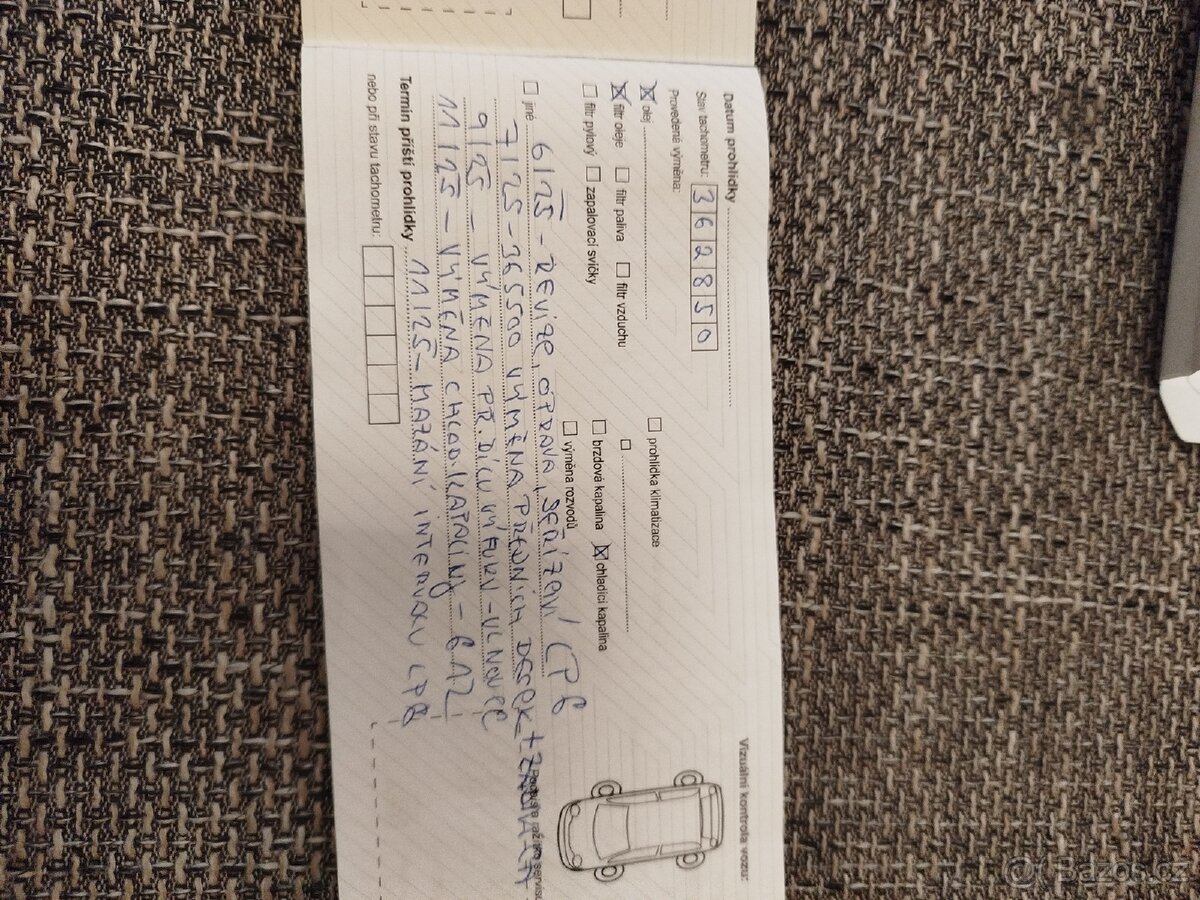 Datum prohlídky
Vizuální kontrola vozu:
Stav tachometru: 362850
Provedená výměna:
olej
prohlídka klimatizace
filtr oleje filtr paliva filtr vzduchu
brzdová kapalina chladící kapalina
filtr pylový zapalovací svíčky
výměna rozvodů
jiné
6/25 - REVIZE, OPRAVA, SEŘÍZENÍ LPG
7/25 - 365500 VÝMĚNA PŘEDNÍCH DESEK +
9/25 - VÝMĚNA PŘ. DÍLU VÝFUKU - VLNOVEC
11/25 - VÝMĚNA CHLAD. KAPALINY - G12
Termín příští prohlídky 11/25 - MAZÁNÍ INTERVALU LPG
nebo při stavu tachometru:
Bazos.cz